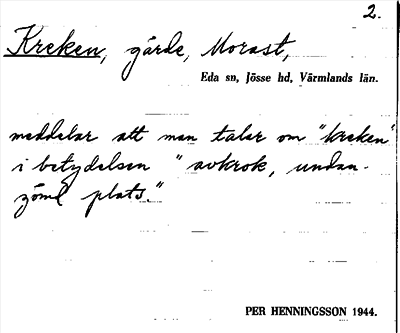 2.
Kreken, gärde, Morast,
Eda sn, Jösse hd, Värmlands län.
meddelar att man talar om "kreken"
i betydelsen " avkrok, undan-
gömd plats."
PER HENNINGSSON 1944.